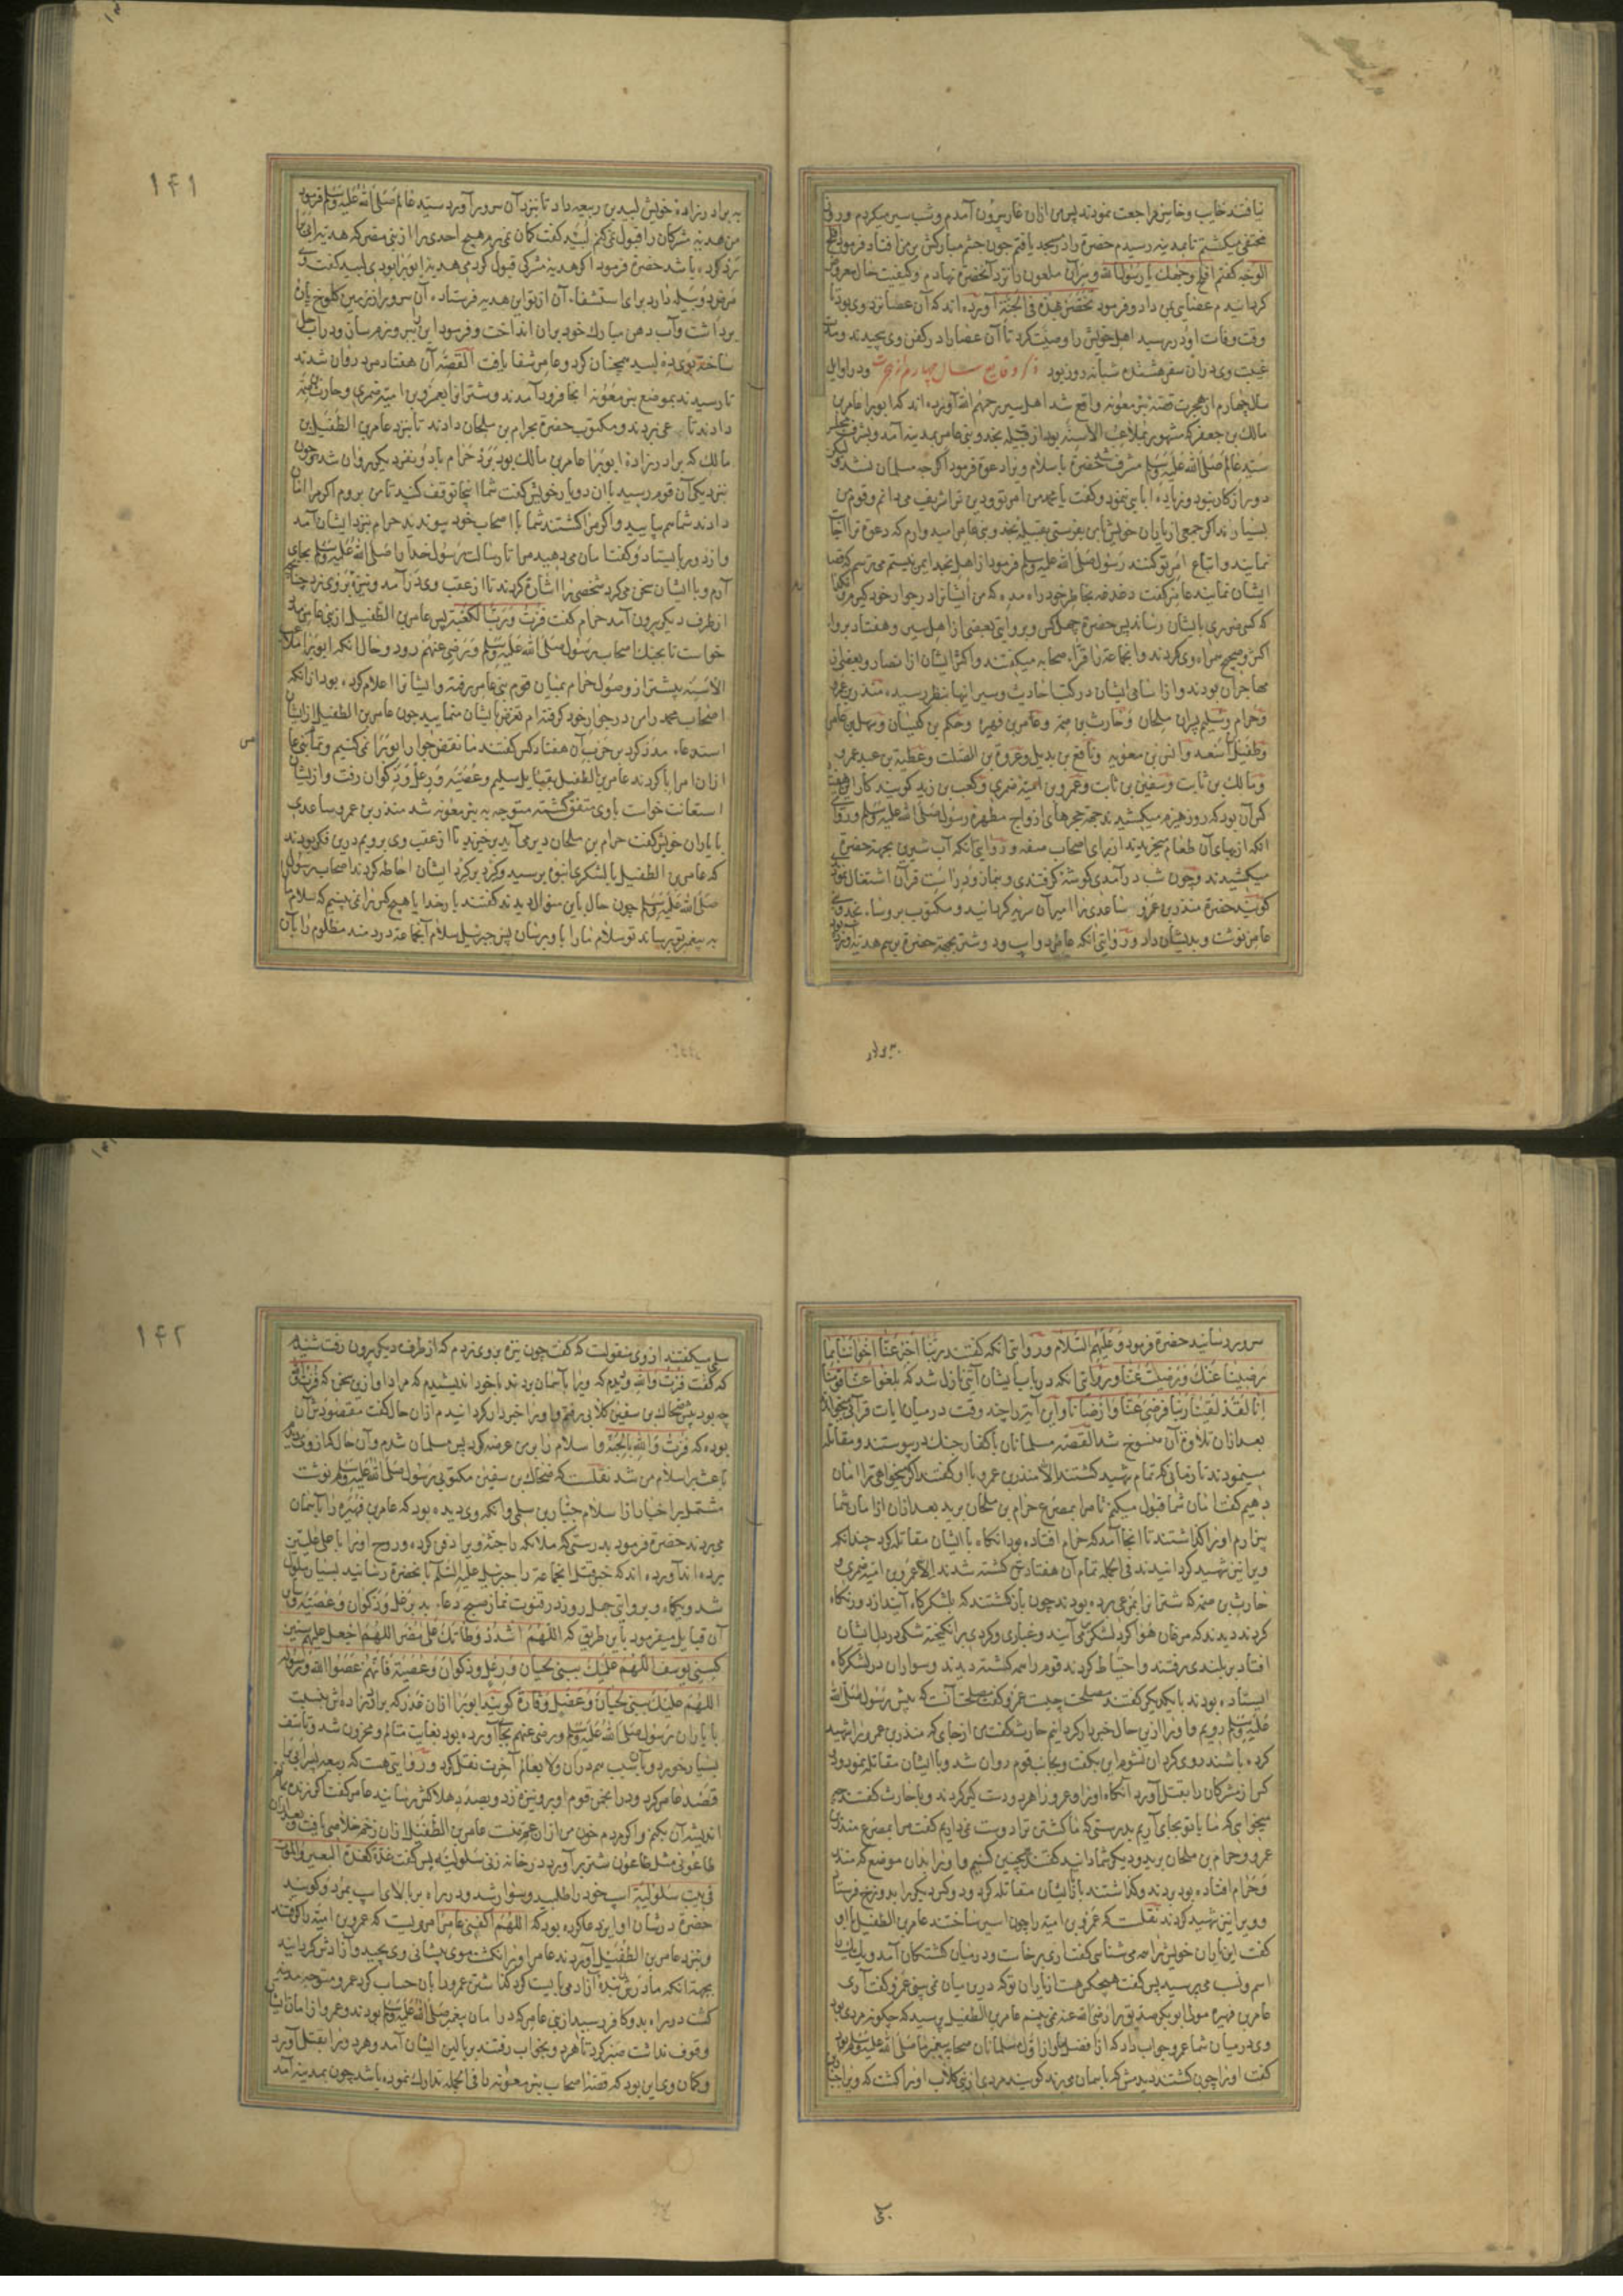 نیافتند خایب و خاسر مراجعت نمودند پس من ازان غار بیرون آمدم و شب سیر میکردم و روز
مختفی میکشتم تا بمدینه رسیدم حضرة را در مسجد یافتم چون چشم مبارکش بر من افتاد فرمود افلح
الوجه کفتم افلح وجهک یا رسول الله و سر آن ملعون را نزد آنحضرة نهادم و کیفیت حال معروض
کردانیدم عصایی بمن داد و فرمود تخصر بهذه فی الجنة آورده اند که آن عصا نزد وی بود تا
وقت وفات او در رسید اهل خویش را وصیت کرد تا آن عصا را در کفن وی پیچیدند و مدت
غیبت وی دران سفر هشتده شبانه روز بود ذکر وقایع سال چهارم از هجرت و در اوایل
سال چهارم از هجرت قصه بئر معونه واقع شد اهل سیر رحمهم الله آورده اند که ابو برا عامر بن
مالک بن جعفر که مشهور بملاعب الاسنه بود از قبیله نجد و بنی عامر بمدینه آمد و بشرف مجلس
سید عالم صلی الله علیه وسلم مشرف شد حضرة با سلام ویرا دعوة فرمود اکرچه مسلمان نشد لیکن
دور از کار نبود و زیاده ابایی ننمود و کفت یا محمد من امر تو و دین ترا شریف می دانم و قوم من
بسیارند اکر جمعی از یاران خویش همراه من بفرستی بقبیله نجد و بنی عامر امید وارم که دعوة ترا اجابت
نمایند و اتباع امر تو کنند رسول صلی الله علیه وسلم فرمود از اهل نجد ایمن نیستم می ترسم که قصد
ایشان نمایند عامر کفت دغدغه بخاطر خود راه مده که من ایشانرا در جوار خود کیرم و نکذارم
که کسی ضرری بایشان رساند پس حضرة چهل کس و بروایتی بعضی از اهل سیر و هفتاد بروایت
اکثر و صحیح همراه وی کردند و انجماعة را قراء صحابه میکفتند و اکثر ایشان از انصار و بعضی از
مهاجران بودند و از اسامی ایشان در کتب احادیث و سیر اینها بنظر رسیده منذر بن عمرو
و حرام و سلیم پسران ملحان و حارث بن صمه و عامر بن فهیره و حکم بن کیسان و سهل بن عامر
و طفیل بن اسعد و انس بن معویه و نافع بن بدیل و عروة بن الصلت و عطیة بن عبد عمرو
و مالک بن ثابت و سفین بن ثابت و عمرو بن امیه ضمری و کعب بن زید کویند کار این هفتاد
کس آن بود که روز هیزم میکشیدند جهة حجرهای ازواج مطهره رسول صلی الله علیه وسلم و روایتی
انکه از بهای آن طعام میخریدند از برای اصحاب صفه و روایتی آنکه آب شیرین بجهة حضرة
میکشیدند و چون شب درآمدی کوشه کرفتندی و بنماز و دراست قرآن اشتغال نمودندی
کویند حضرة منذر بن عمرو ساعدی را امیر آن سریه کردانید و مکتوب بروسا نجد و بنی
عامر نوشت و بدیشان داد و روایتی آنکه عامر دو اسپ و دو شتر بجهة حضرة برسم هدیه آورد
به برادر زاده خویش لبید بن ربیعه داد تا بنزد آن سرور آورد سید عالم صلی الله علیه وسلم فرمود
من هدیه مشرکان را قبول نمی کنم لبید کفت کمان نمی برم هیچ احدی را از بنی مضر که هدیه ابی برا
رد کرده باشد حضرة فرمود اکر هدیه مشرکی قبول کردمی هدیه ابو برا بودی لبید کفت وی
مرض دبیله دارد برای استشفاء آن از تو این هدیه فرستاده آن سرور از زمین کلوخ پارهٔ
برداشت و آب دهن مبارک خود بران انداخت و فرمود این ببر و بوی رسان و در آب حل
ساخته بوی ده لبید همچنان کرد و عامر شفا یافت القصه آن هفتاد مرد روان شدند
تا رسیدند بموضع بئر معونه انجا فرود آمدند و شترانرا بعمرو بن امیه ضمری و حارث بن صمه
دادند تا بمرعی بردند و مکتوب حضرة بحرام بن ملحان دادند تا بنزد عامر بن الطفیل بن
مالک که برادر زادهٔ ابو برا عامر بن مالک بود برد حرام با دو نفر دیکر روان شد چون
بنزدیکی آن قوم رسید با ان دو یار خویش کفت شما اینجا توقف کنید تا من بروم اکر مرا امان
دادند شما هم بیایید و اکر مرا کشتند شما با اصحاب خود پیوندید حرام نزد ایشان آمد
و از دور بایستاد و کفت امان می دهید مرا تا رسالت رسول خدا را صلی الله علیه وسلم بجای
آرم و با ایشان سخن می کرد شخصی را اشارة کردند تا از عقب وی درآمد و نیزه بر وی زد چنانچه
از طرف دیکر بیرون آمد حرام کفت فزت و رب الکعبه پس عامر بن الطفیل از بنی عامر مدد
خواست تا بجنک اصحاب رسول صلی الله علیه وسلم و رضی عنهم رود و حال انکه ابو برا ملاعب
الاسنه پیشتر از وصول حرام بمیان قوم بنی عامر رفته و ایشانرا اعلام کرده بود از آنکه
اصحاب محمد را من در جوار خود کرفته ام تعرض بایشان منمایید چون عامر بن الطفیل از ایشان
استدعاء مدد کرد بر حرب آن هفتاد کس کفتند ما نقض جوار ابو برا نمی کنیم و تمام بنی عامر
ازان امر ابا کردند عامر بن الطفیل بقبایل سلیم و عصیه و رعل و ذکوان رفت و ازیشان
استعانت خواست با وی متفق کشته متوجه به بئر معونه شد منذر بن عمرو ساعدی
با یاران خویش کفت حرام بن ملحان دیر می آید برخیزید تا از عقب وی برویم درین فکر بودند
که عامر بن الطفیل با لشکری انبوه برسید و کرد بر کرد ایشان احاطه کردند اصحاب رسول
صلی الله علیه وسلم چون حال باین منوال دیدند کفتند بار خدایا هیچ کس را نمی بینیم که سلام ما
به پیغمبر تو رساند تو سلام ما را باو برسان پس جبرئیل سلام آنجماعة دردمند مظلوم را بآن
۱۴۱
سرور رسانید حضرة فرمود و علیهم السلام و روایتی انکه کفتند ربنا اخبر عنا اخواننا بما
رضینا عنک و رضیت عنا و روایتی انکه در باب ایشان آیتی نازل شد که بلغوا عنا قومنا
انا لقد لقینا ربنا فرضی عنا و ارضانا و این آیة را چند وقت در میان آیات قرآنی میخواندند
بعد ازان تلاوة آن منسوخ شد القصه مسلمانان با کفار جنک در پیوستند و مقاتله
مینمودند تا زمانی که تمام شهید کشتند الا منذر بن عمرو با او کفتند اکر میخواهی ترا امان
دهیم کفت امان شما قبول میکنم تا مرا بمصرع حرام بن ملحان برید بعد ازان از امان شما
بیزارم او را کذاشتند تا انجا آمد که حرام افتاده بود انکاه با ایشان مقاتله کرد چندانکه
ویرا نیز شهید کردانیدند فی الجمله تمام آن هفتاد تن کشته شدند الا عمرو بن امیه ضمری و
حارث بن صمه که شترانرا بمرعی برده بودند چون باز کشتند که بلشکرکاه آیند از دور نکاه
کردند دیدند که مرغان هوا کرد لشکر می آیند و غباری و کردی بر انکیخته شکی در دل ایشان
افتاد بر بلندی رفتند و احتیاط کردند قوم را همه کشته دیدند و سواران در لشکرکاه
ایستاده بودند با یکدیکر کفتند مصلحت چیست عمرو کفت مصلحت آنست که پیش رسول صلی الله
علیه وسلم رویم و او را ازین حال خبردار کردانیم حارث کفت من از جایی که منذر بن عمرو را شهید
کرده باشند روی کردان نشوم این بکفت و بجانب قوم روان شد و با ایشان مقاتله نمود و دو
کس از مشرکان را بقتل آورد آنکاه او را و عمرو را هر دو دست کیر کردند و با حارث کفتند چه
میخواهی که ما با تو بجای آریم بدرستی که ما کشتن ترا دوست نمی داریم کفت مرا بمصرع منذر بن
عمرو و حرام بن ملحان برید و دیکر شما دانید کفتند همچنین کنیم و او را بدان موضع که منذر
و حرام افتاده بودند بردند و کذاشتند باز با ایشان مقاتله کرد و دو کس دیکر را بدوزخ فرستاد
و ویرا نیز شهید کردند نقلست که عمرو بن امیه را چون اسیر ساختند عامر بن الطفیل با او
کفت این یاران خویش را همه می شناسی کفت آری برخاست و در میان کشتکان آمد و یک یک را
اسم و نسب می پرسید پس کفت هیچکس هست از یاران تو که درین میان نمی بینی عمرو کفت آری
عامر بن فهیره مولا ابو بکر صدیق را رضی الله عنه نمی بینم عامر بن الطفیل پرسید که چکونه مردی بود
وی در میان شما عمرو جواب داد که از افضل ما و از اول مسلمانان صحابه پیغمبر ما صلی الله علیه وسلم بود
کفت او را چون کشتند دیدمش که بآسمان می برند کویند مردی از بنی کلاب او را کشت که ویرا جبار
سلمی میکفتند از وی منقولست که کفت چون نیزه بر وی زدم که از طرف دیکر بیرون رفت شنیدم
که کفت فزت والله و دیدم که ویرا بآسمان بردند با خود اندیشیدم که مراد او ازین سخن که فزت والله
چه بود پیش ضحاک بن سفین کلابی رفتم و او را خبردار کردانیدم ازان حال کفت مقصودش آن
بوده که فزت والله بالجنة و اسلام را بر من عرضه کرد پس مسلمان شدم و آن حال که از وی دیدم
باعث بر اسلام من شد نقلست که ضحاک بن سفین مکتوبی برسول صلی الله علیه وسلم نوشت
مشتمل بر اخبار از اسلام جبار بن سلمی و انکه وی دیده بود که عامر بن فهیره را بآسمان
می بردند حضرة فرمود بدرستی که ملائکه جثه ویرا دفن کرده و روح او را باعلی علیین
برده اند آورده اند که خبر قتل انجماعة را جبرئیل علیه السلام بآنحضرة رسانید بسیار ملول
شد و یکماه و بروایتی چهل روز در قنوت نماز صبح دعاء بد بر رعل و ذکوان و عصیه و باقی
آن قبایل میفرمود باین طریق که اللهم اشدد وطأتک علی مضر اللهم اجعل علیهم سنین
کسنی یوسف اللهم علیک ببنی لحیان و رعل و ذکوان و عصیة فانهم عصوا الله و رسوله
اللهم علیک ببنی لحیان و عضل و قارة کویند ابو برا ازان غدر که برادر زاده اش نسبت
با یاران رسول صلی الله علیه وسلم و رضی عنهم بجا آورده بود بغایت متالم و محزون شد و تاسف
بسیار خورد و بآن سبب هم دران ولا بعالم آخرت نقل کرد و روایتی هست که ربیعه پسر ابی برا
قصد عامر کرد و در انجمن قوم او را نیزه زد و بصدد هلاکش رسانید عامر کفت اکر زنده مانم
اندیشه آن بکنم و اکر مردم خون من ازان عمم تست عامر بن الطفیل ازان زخم خلاصی یافت و بعد ازان
طاعونی مثل طاعون شتر برآورد در خانه زنی سلولیه پس کفت غدة کغدة البعیر و الموت
فی بیت سلولیة اسپ خود را طلبید و سوار شد و در راه بر بالای اسپ بمرد و کویند
حضرة در شان او این دعا کرده بود که اللهم اکفنی عامرا مرویست که عمرو بن امیه را کرفتند
و بنزد عامر بن الطفیل آوردند عامر او را انکشت موی پیشانی وی بچید و آزادش کردانید
بجهة انکه مادرش بنده آزاد می بایست کرد کفت عمرو را بآن حساب کرد عمرو متوجه مدینه
کشت در راه بدو کافر رسید از بنی عامر که در امان پیغمبر صلی الله علیه وسلم بودند و عمرو از امان ایشان
وقوف نداشت صبر کرد تا هر دو بخواب رفتند بر بالین ایشان آمد و هر دو را بقتل آورد
و کمان وی این بود که قصه اصحاب بئر معونه را فی الجمله تدارک نموده باشد چون بمدینه آمد
۱۴۲